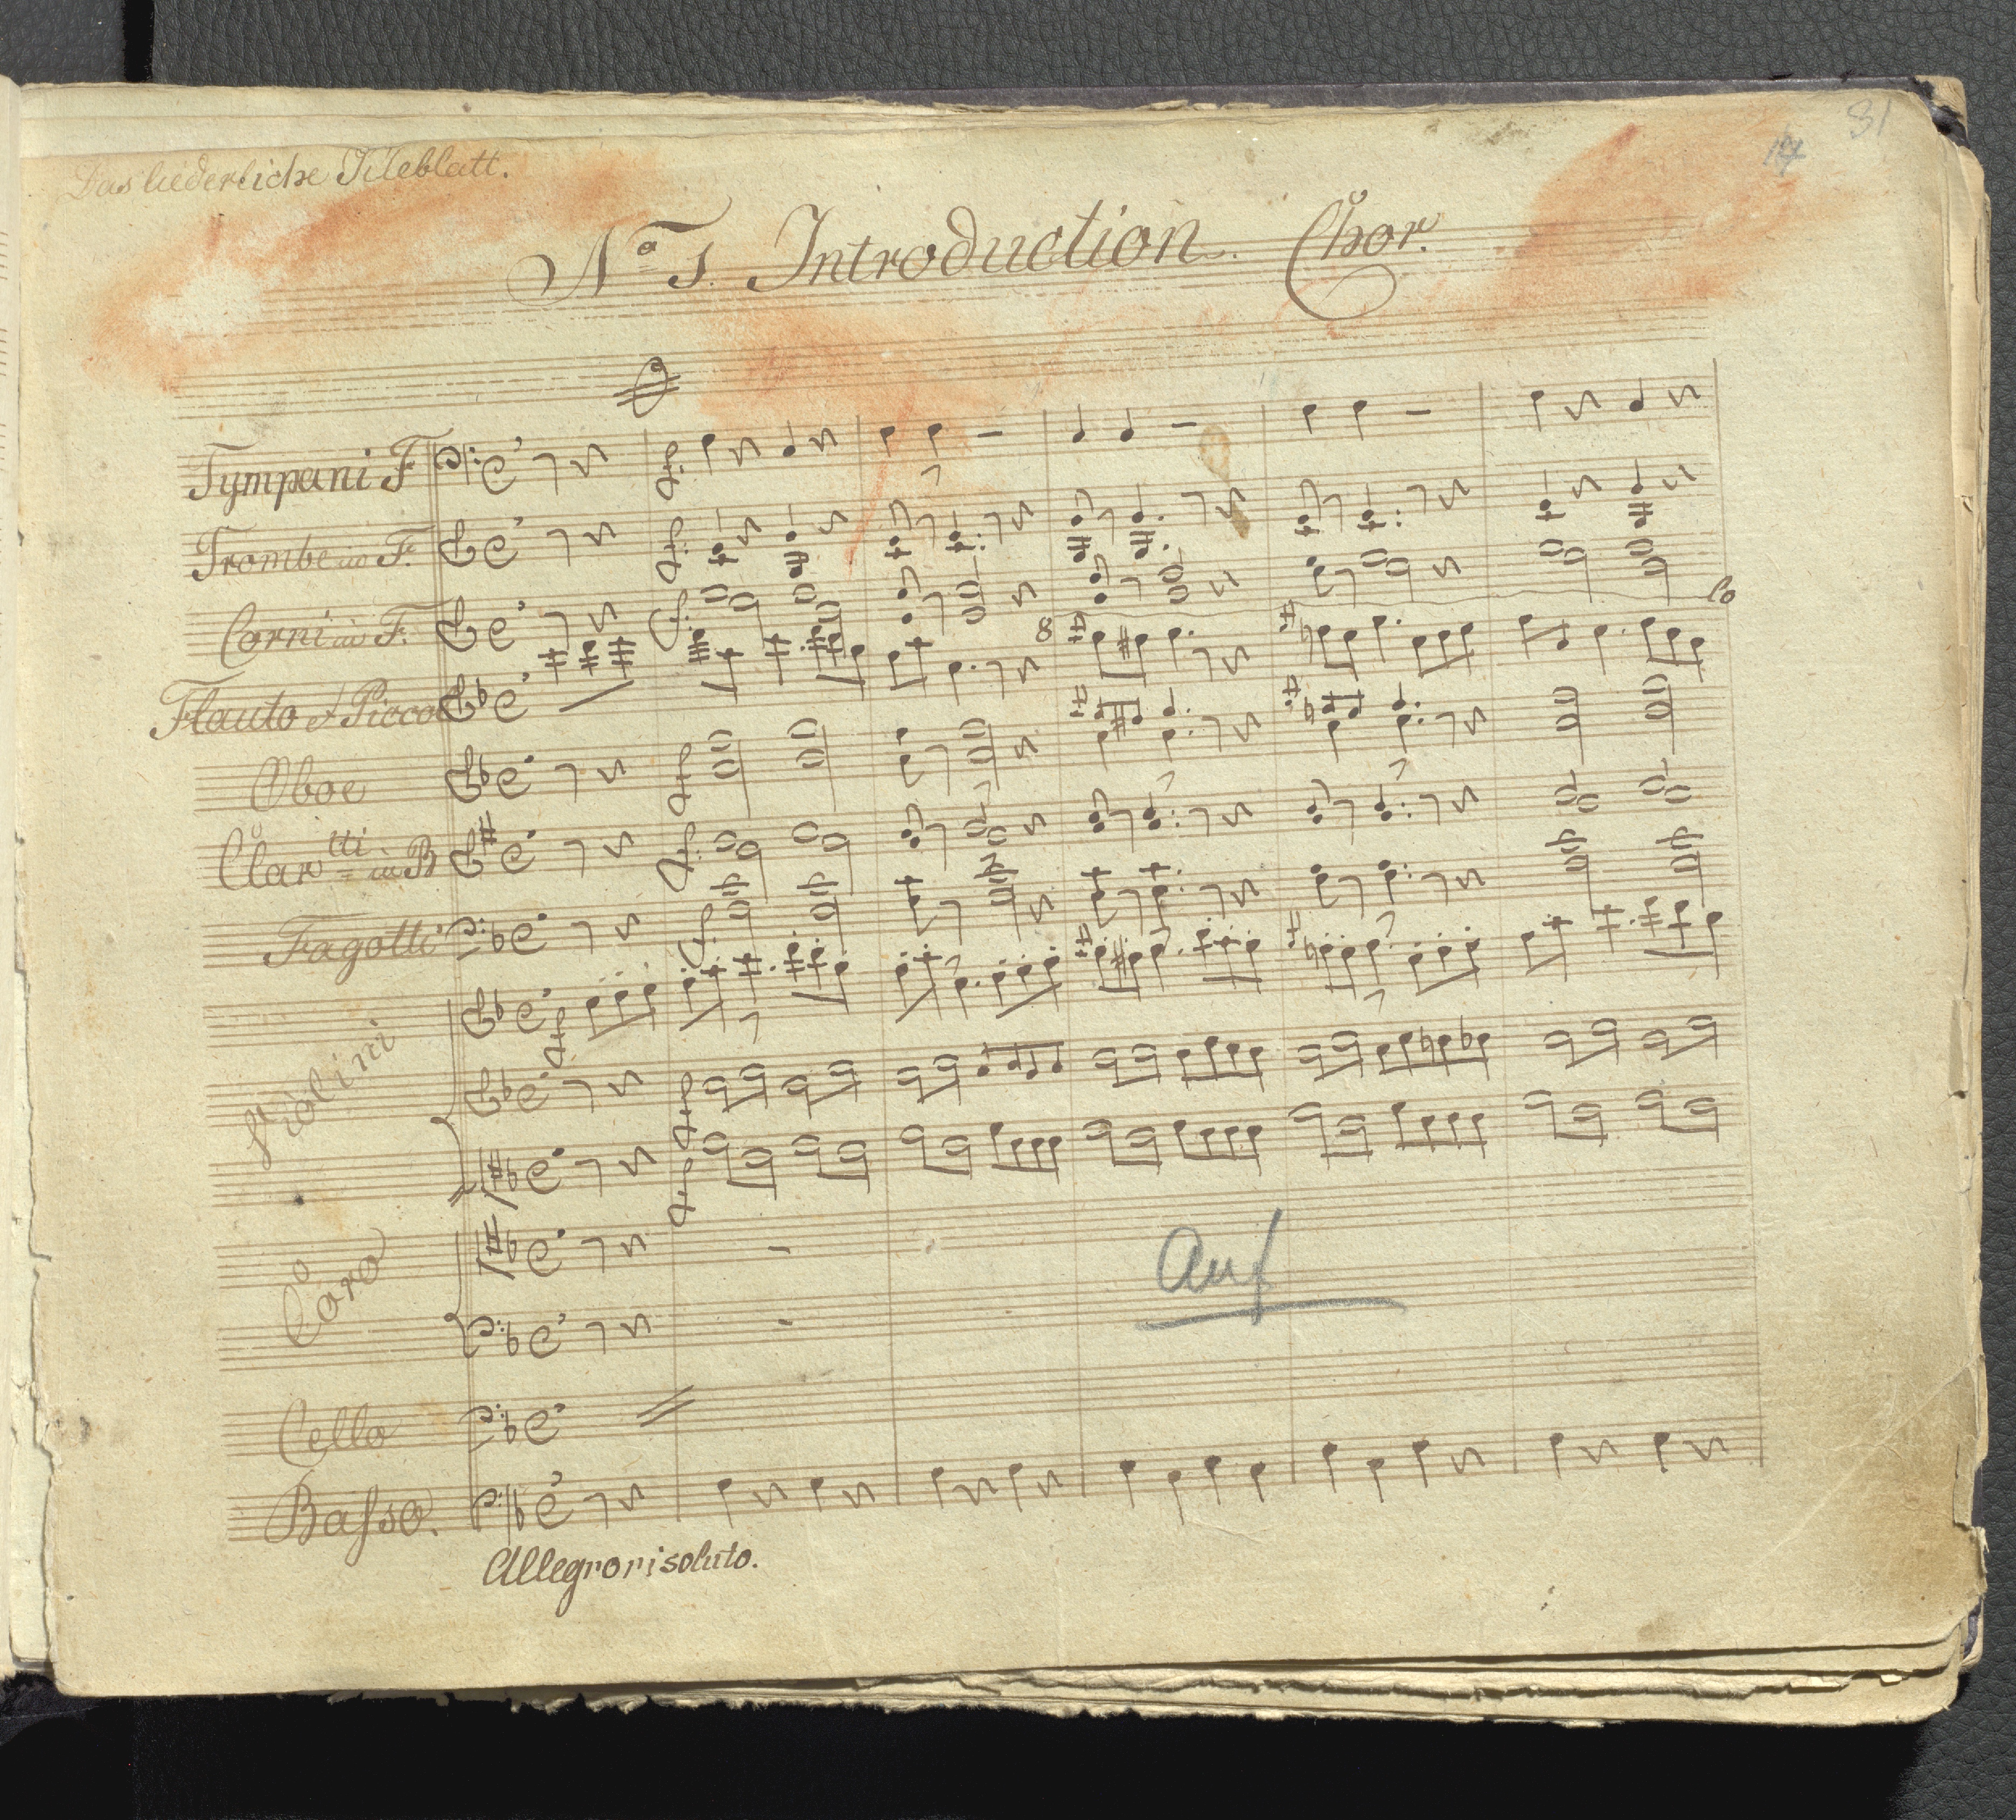 81
14
Das liederliche Tileblatt.
No 1. Introduction. Chor.
Tympani F
Trombe in F.
Corni in F.
Flauto et Piccol
8
lo
Oboe
Clartti in B
Fagotti
Violini
Coro
auf
Cello
Basso.
Allegro risoluto.